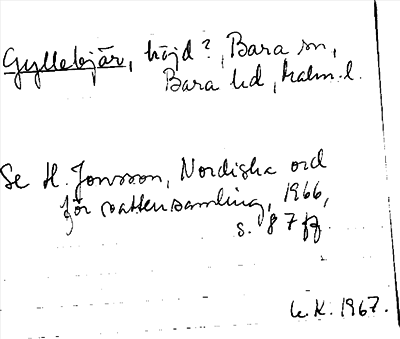 Gyllebjär, höjd?, Bara sn,
Bara hd, Malm. l.
Se H. Jonsson, Nordiska ord
för vattensamling, 1966,
s. 87 ff.
G. K. 1967.